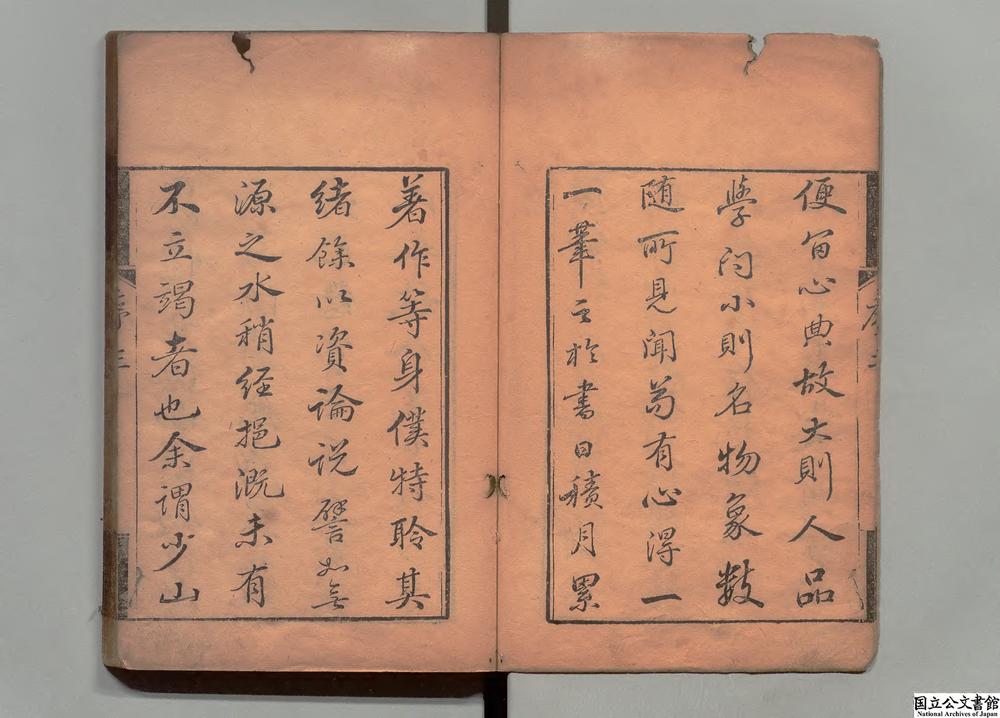 便留心典故大則人品
學問小則名物象數
随所見聞苟有心得一
一筆之於書日積月累
著作等身僕特聆其
緒餘以資論説譬如無
源之水稍経挹溉未有
不立竭者也余謂少山
序三
国立公文書館
National Archives of Japan